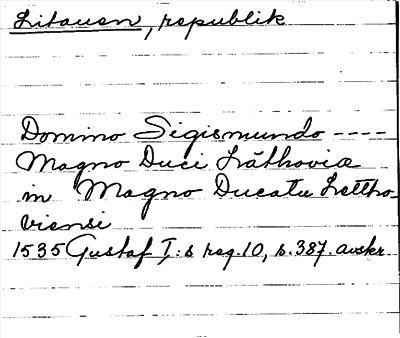 Litauen, republik
Domino Sigismundo ----
Magno Duci Láthoviæ
in Magno Ducatu Lettho-
viensi
1535 Gustaf I:s reg. 10, s. 387. avskr.